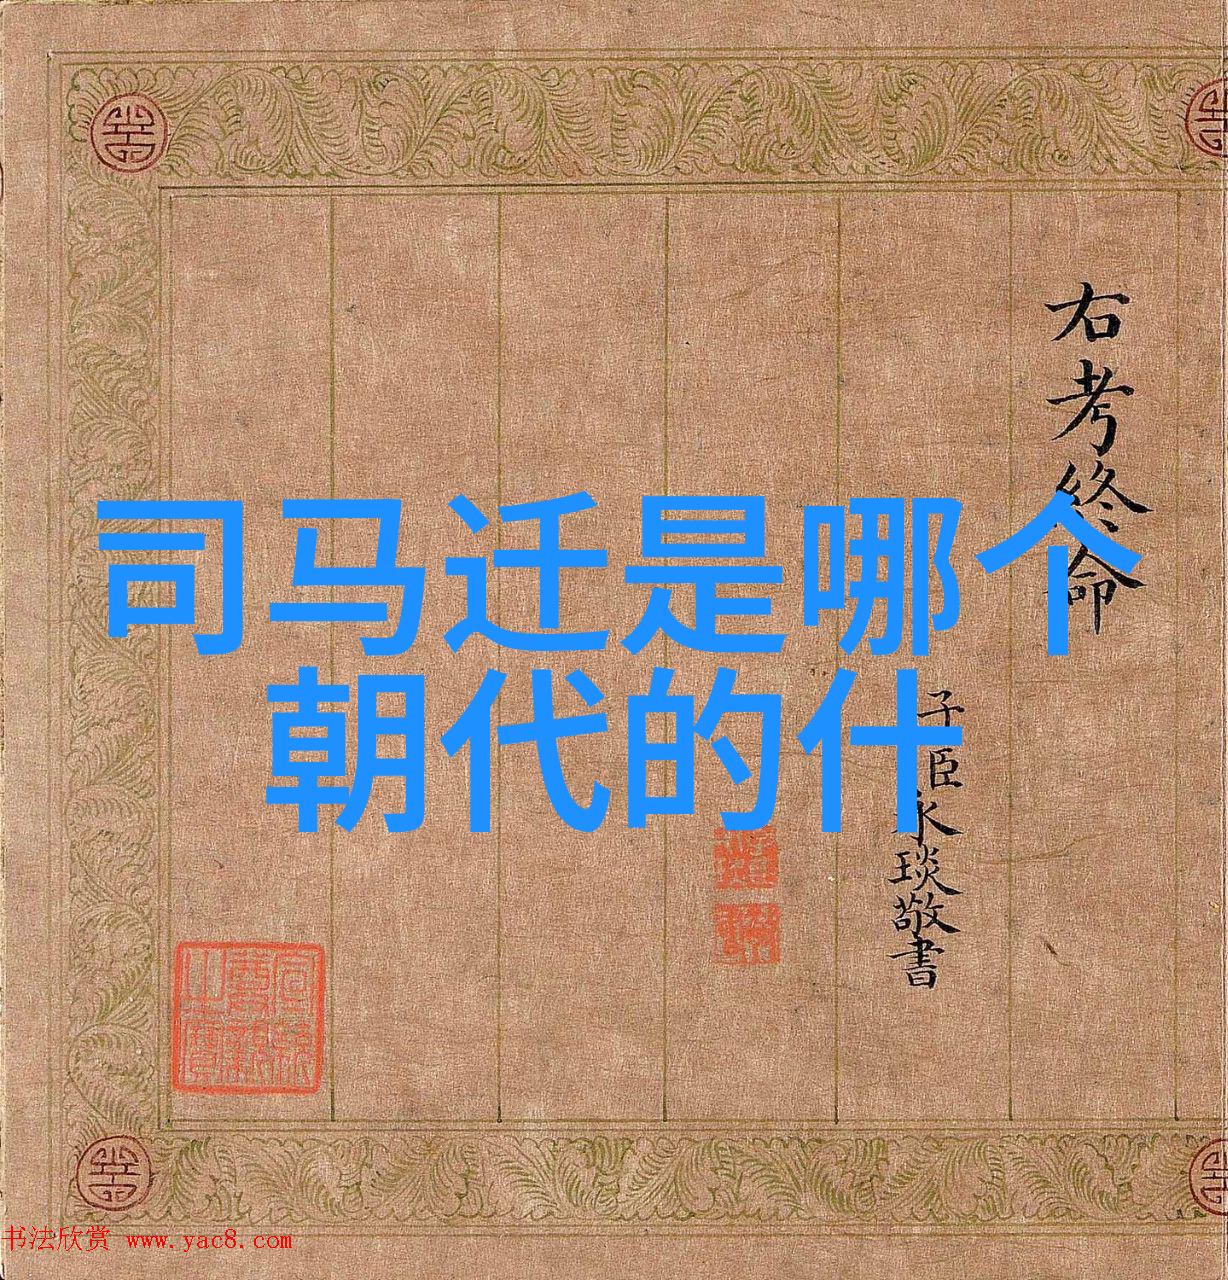 右考終命
子臣永琰敬書
司马迁是哪个
朝代的什
书法欣赏 www.yac8.com